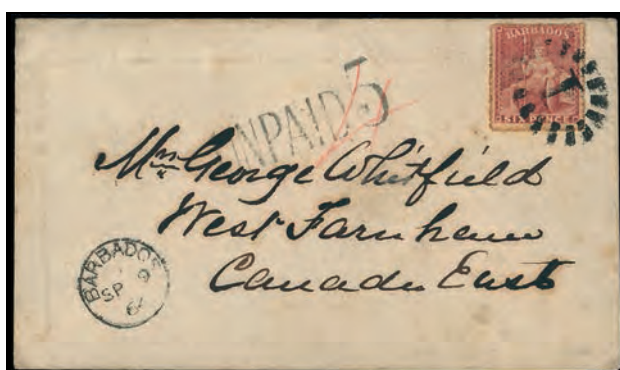 BARBADOS
SIX PENCE
1
UNPAID 5
Mrs George Whitfield
West Farnham
Canada East
BARBADOS
9
SP